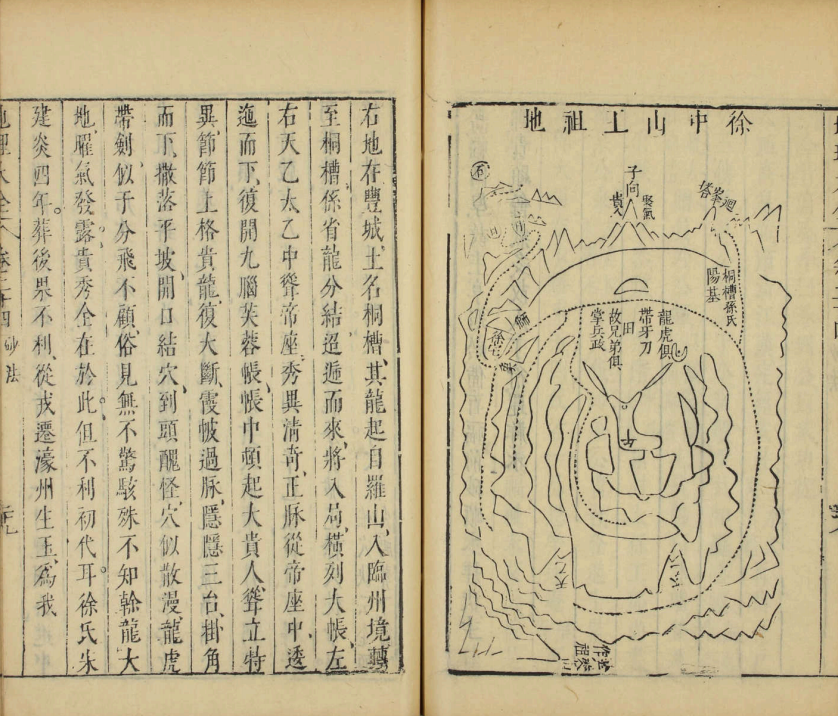 徐中山王祖地
子向
貴人
聚氣
迴峯
桐槽孫氏
陽基
龍虎俱
帶牙刀
故兄弟俱
掌兵政
田
穴
太乙
右地在豐城土名桐槽其龍起自羅山入臨州境轉
至桐槽係省龍分結迢遞而來將入局橫列大帳左
右天乙太乙中聳帝座秀異清奇正脉從帝座中透
迤而下復開九腦芙蓉帳帳中頓起大貴人聳立特
異節節上格貴龍復大斷霞帔過脉隱隱三台掛角
而下撒落平坡開口結穴到頭醜怪穴似散漫龍虎
帶劍似乎分飛不顧俗見無不驚駭殊不知幹龍大
地曜氣發露貴秀全在於此但不利初代耳徐氏朱
建炎四年葬後果不利從戎遷濠州生玉為我